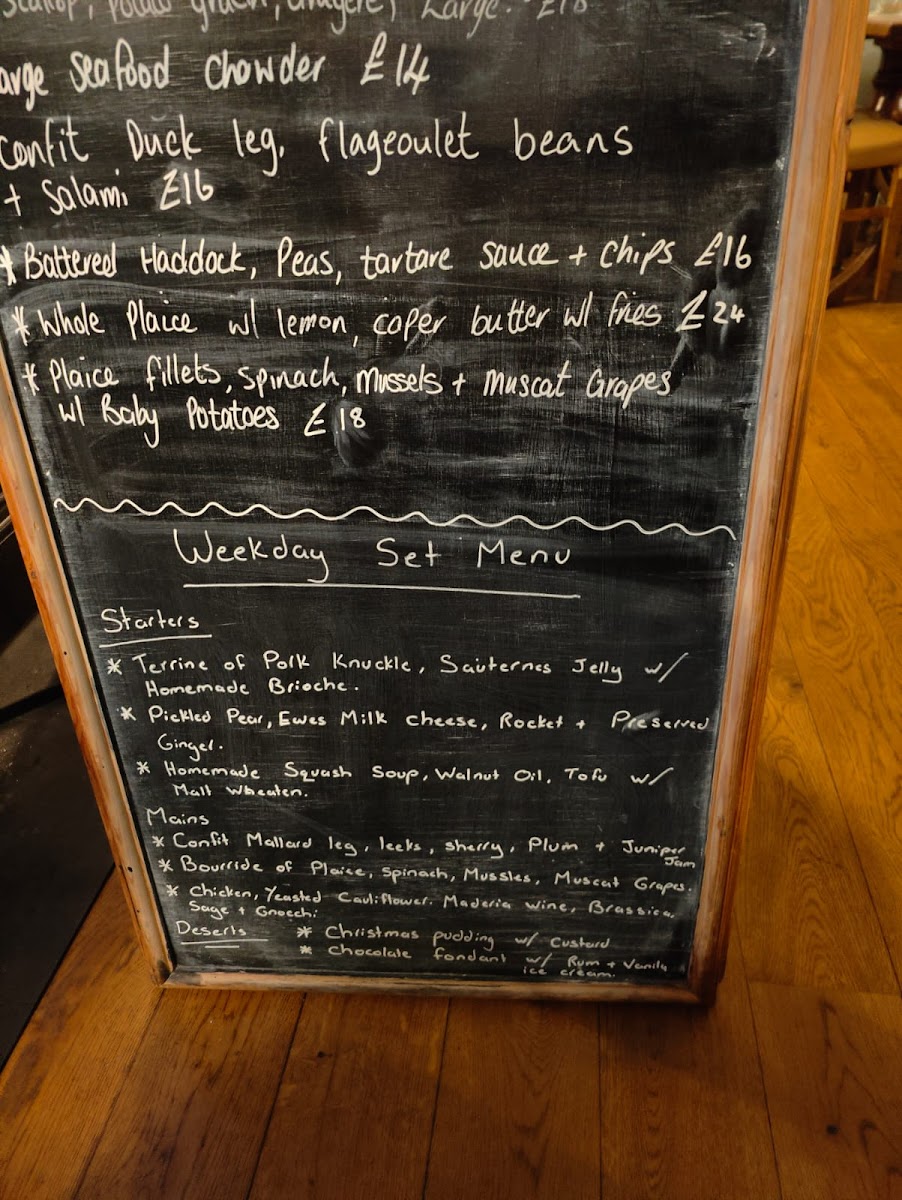 Scallop, potato gratin, gruyere, Large. £18
arge Seafood chowder £14
Confit Duck leg, flageoulet beans
+ Salami £16
* Battered Haddock, Peas, tartare sauce + chips £16
* Whole Plaice w/ lemon, caper butter w/ fries £24
* Plaice fillets, spinach, Mussels + Muscat Grapes
w/ Baby Potatoes £18
Weekday Set Menu
Starters
* Terrine of Pork Knuckle, Sauternes Jelly w/
Homemade Brioche.
* Pickled Pear, Ewes Milk cheese, Rocket + Preserved
Ginger.
* Homemade Squash Soup, Walnut Oil, Tofu w/
Malt Wheaten.
Mains
* Confit Mallard leg, leeks, sherry, Plum + Juniper
Jam
* Bourride of Plaice, Spinach, Mussles, Muscat Grapes.
* Chicken, Yeasted Cauliflower. Maderia wine, Brassica,
Sage + Gnocchi.
Deserts * Christmas pudding w/ custard
* Chocolate fondant w/ Rum + Vanilla
ice cream.